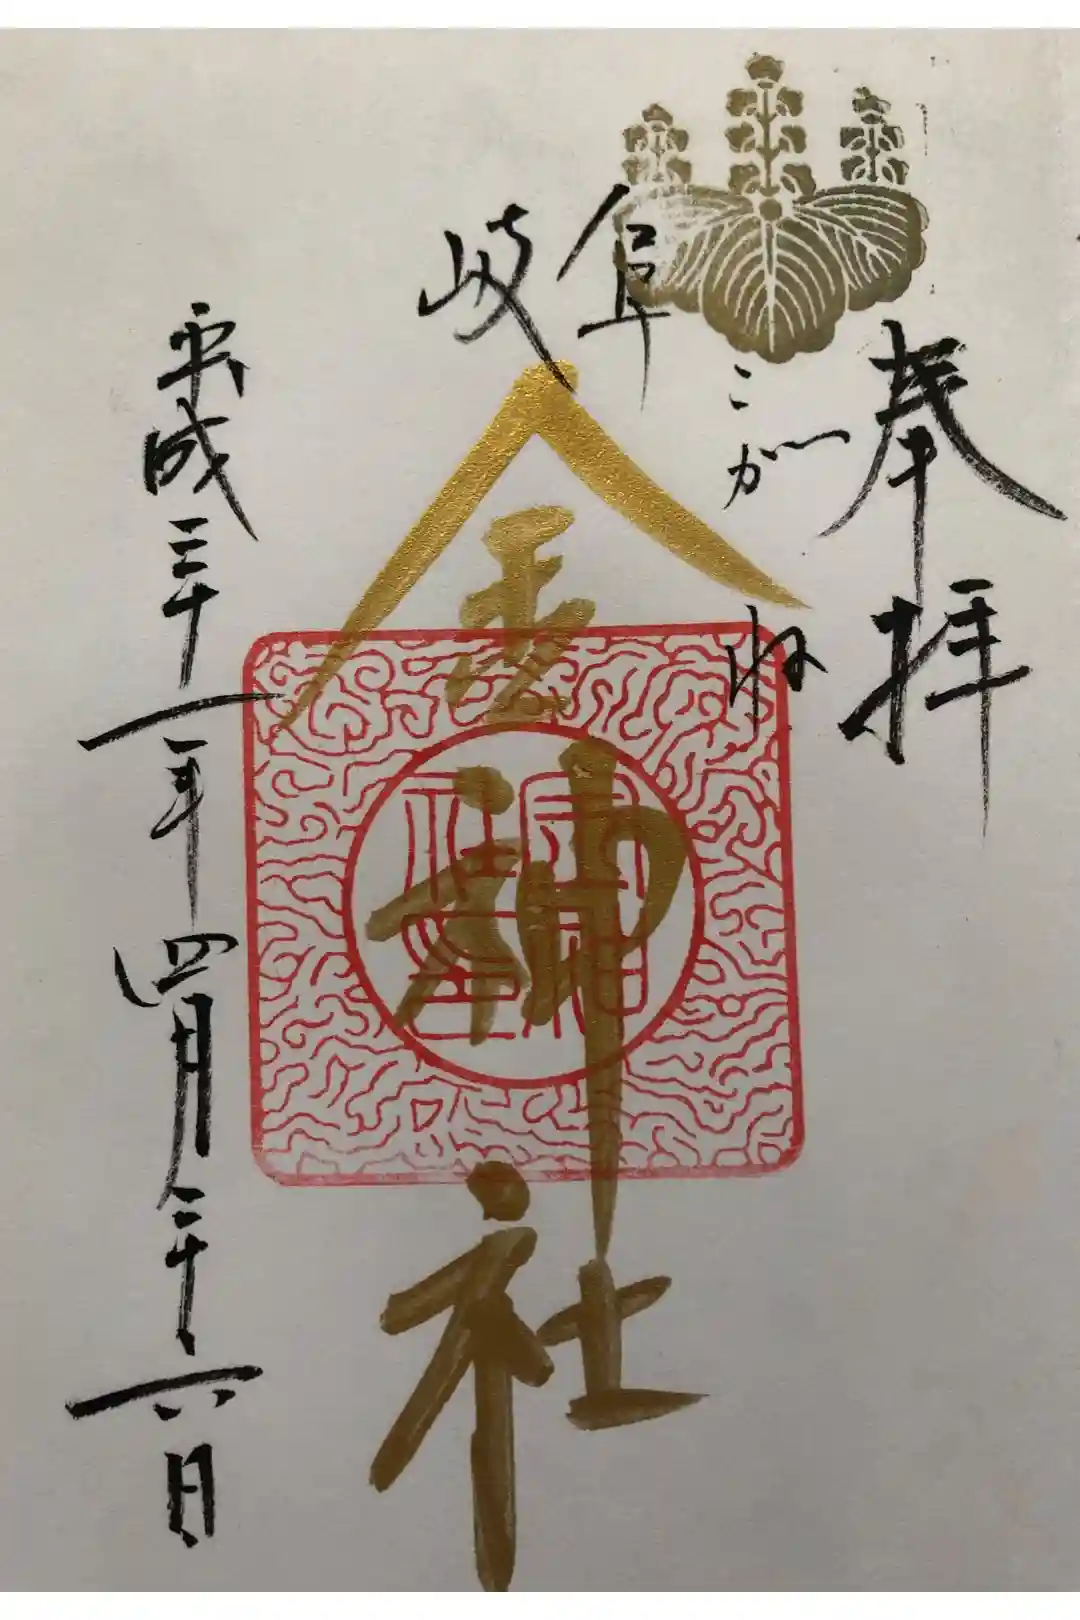 奉拝
こがね
岐阜
金神社
平成三十一年四月二十六日